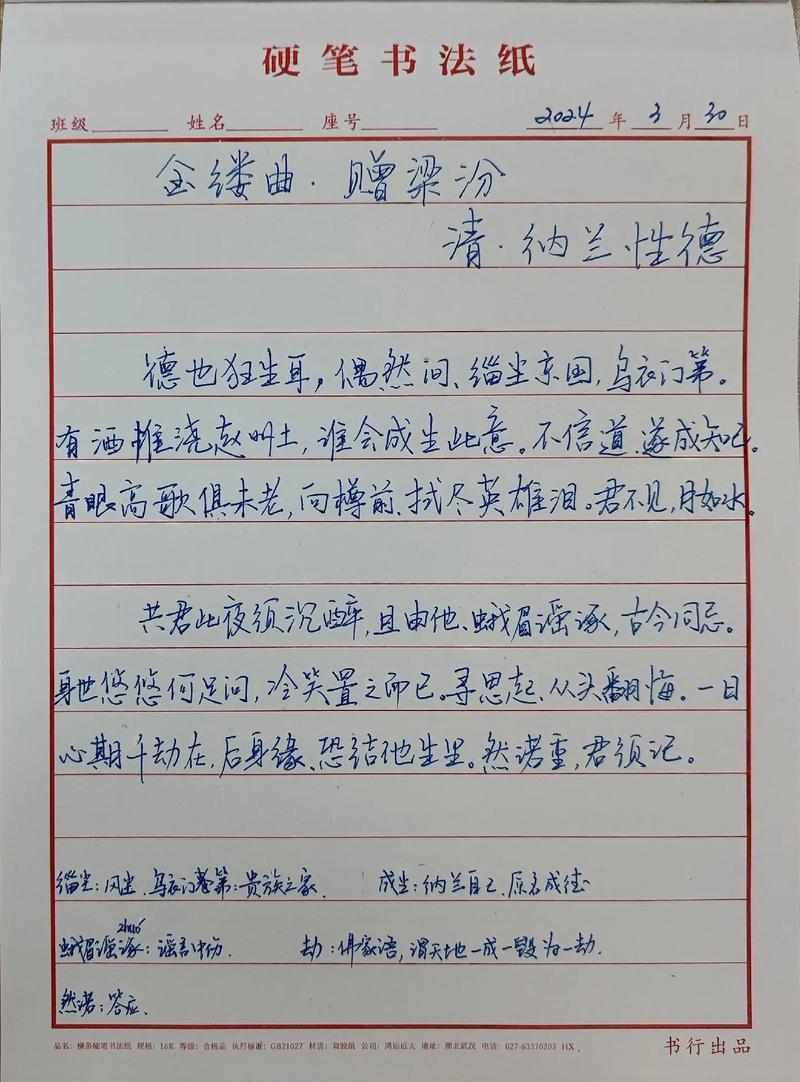 硬笔书法纸
班级 姓名 座号 2024年3月30日
金缕曲·赠梁汾
清·纳兰性德
德也狂生耳，偶然间、缁尘京国，乌衣门第。
有酒惟浇赵州土，谁会成生此意。不信道、遂成知己。
青眼高歌俱未老，向樽前、拭尽英雄泪。君不见，月如水。
共君此夜须沉醉，且由他、蛾眉谣诼，古今同忌。
身世悠悠何足问，冷笑置之而已。寻思起、从头翻悔。一日
心期千劫在，后身缘、恐结他生里。然诺重，君须记。
缁尘：风尘 乌衣门第：贵族之家 成生：纳兰自己，原名成德
zhuó
蛾眉谣诼：谣言中伤. 劫：佛家语，谓天地一成一毁为一劫.
然诺：答应.
品名：横条硬笔书法纸 规格：16K 等级：合格品 执行标准：GB21027 材质：双胶纸 公司：鸿运远大 地址：湖北武汉 电话：027-63370203 HX
书行出品